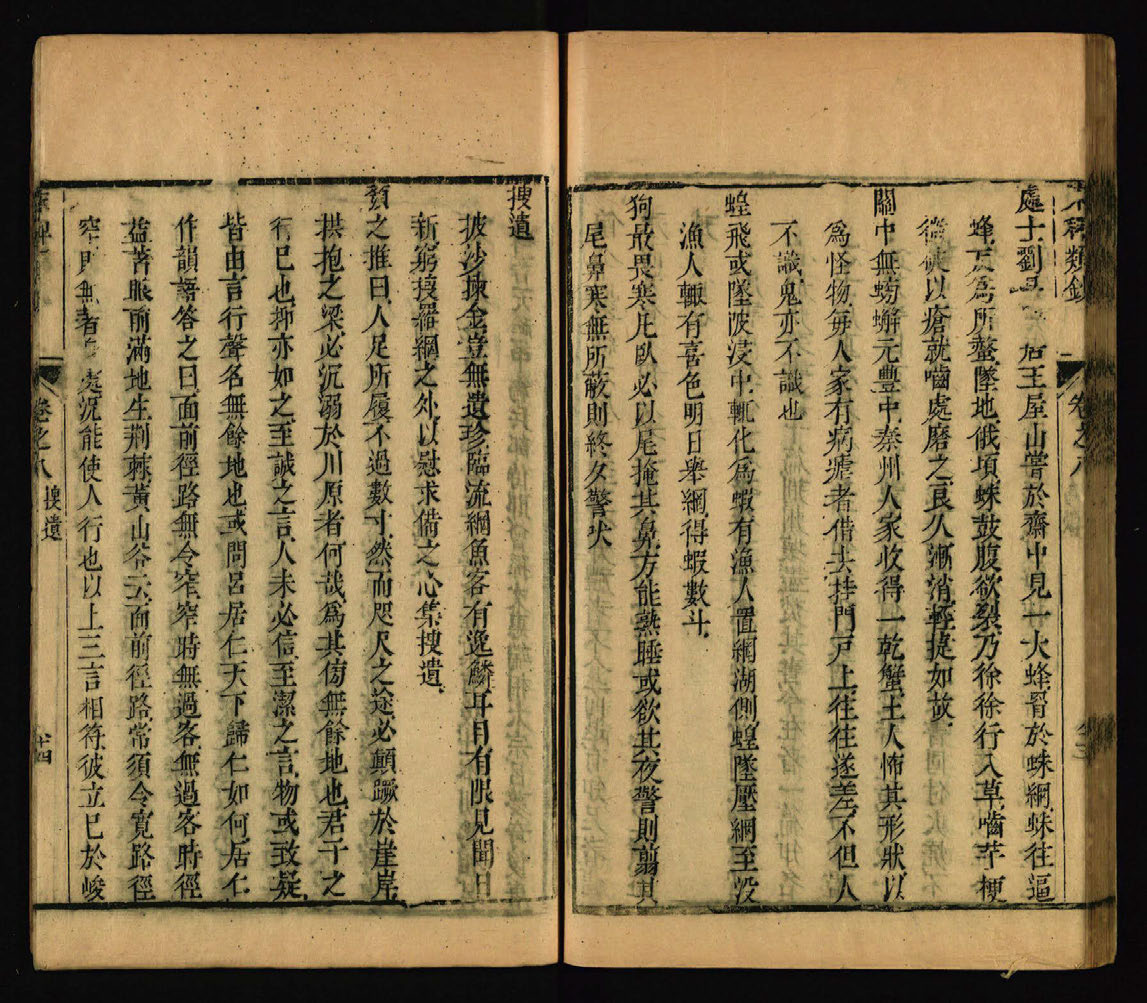 稗類鈔
卷之八
處士劉 居王屋山嘗於齋中見一大蜂罥於蛛網蛛往逼
蜂反爲所螫墜地俄頃蛛鼓腹欲裂乃徐徐行入草嚙芋梗
微破以瘡就嚙處磨之良久漸消輕捷如故
關中無螃蠏元豐中秦州人家收得一乾蟹土人怖其形狀以
爲怪物每人家有病瘧者借去挂門戶上往往遂差不但人
不識鬼亦不識也
蝗飛或墜陂浸中輒化爲蝦有漁人置網湖側蝗墜壓網至沒
漁人輙有喜色明日舉網得蝦數斗
狗最畏寒凡臥必以尾掩其鼻方能熟睡或欲其夜警則剪其
尾鼻寒無所蔽則終夕警吠
搜遺
披沙揀金豈無遺珍臨流網魚客有逸鱗耳目有限見聞日
新窮搜羅網之外以慰求備之心集搜遺
顏之推曰人足所履不過數寸然而咫尺之途必顛蹶於崖岸
拱抱之梁必沉溺於川原者何哉爲其傍無餘地也君子之
行已也抑亦如之至誠之言人未必信至潔之言物或致疑
皆由言行聲名無餘地也或問呂居仁天下歸仁如何居仁
作韻語答之曰面前徑路無令窄窄時無過客無過客時徑
益荖眼前滿地生荆棘黃山谷云面前徑路常須令寬路徑
窄則無著身處況能使人行也以上三言相符彼立巳於峻
卷之八 搜遺
十四